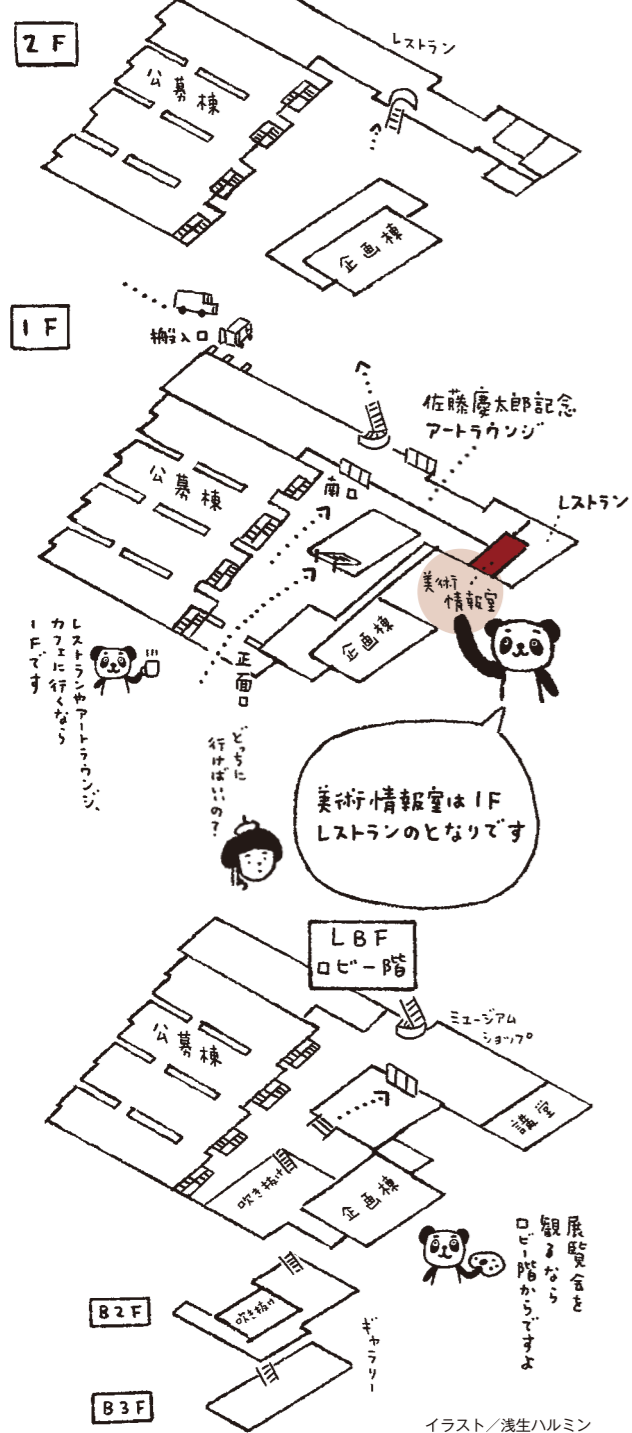 2F
レストラン
公募棟
企画棟
1F
搬入口
佐藤慶太郎記念
アートラウンジ
公募棟
南口
レストラン
美術
情報室
企画棟
正面口
レストランやアートラウンジ、
カフェに行くなら
1Fです
どっちに
行けばいいの？
美術情報室は1F
レストランのとなりです
LBF
ロビー階
公募棟
ミュージアム
ショップ
講堂
吹き抜け
企画棟
展覧会を
観るなら
ロビー階からですよ
B2F
吹き抜け
ギャラリー
B3F
イラスト／浅生ハルミン